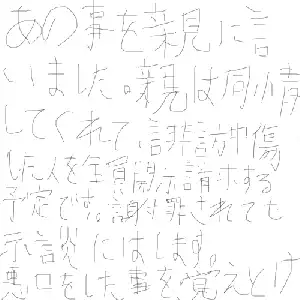 あの事を親に言
いました。親は同情
してくれて、誹謗中傷
した人を全員開示請求する
予定です。謝罪されても
示談にはします。
悪口をした事を覚えとけ